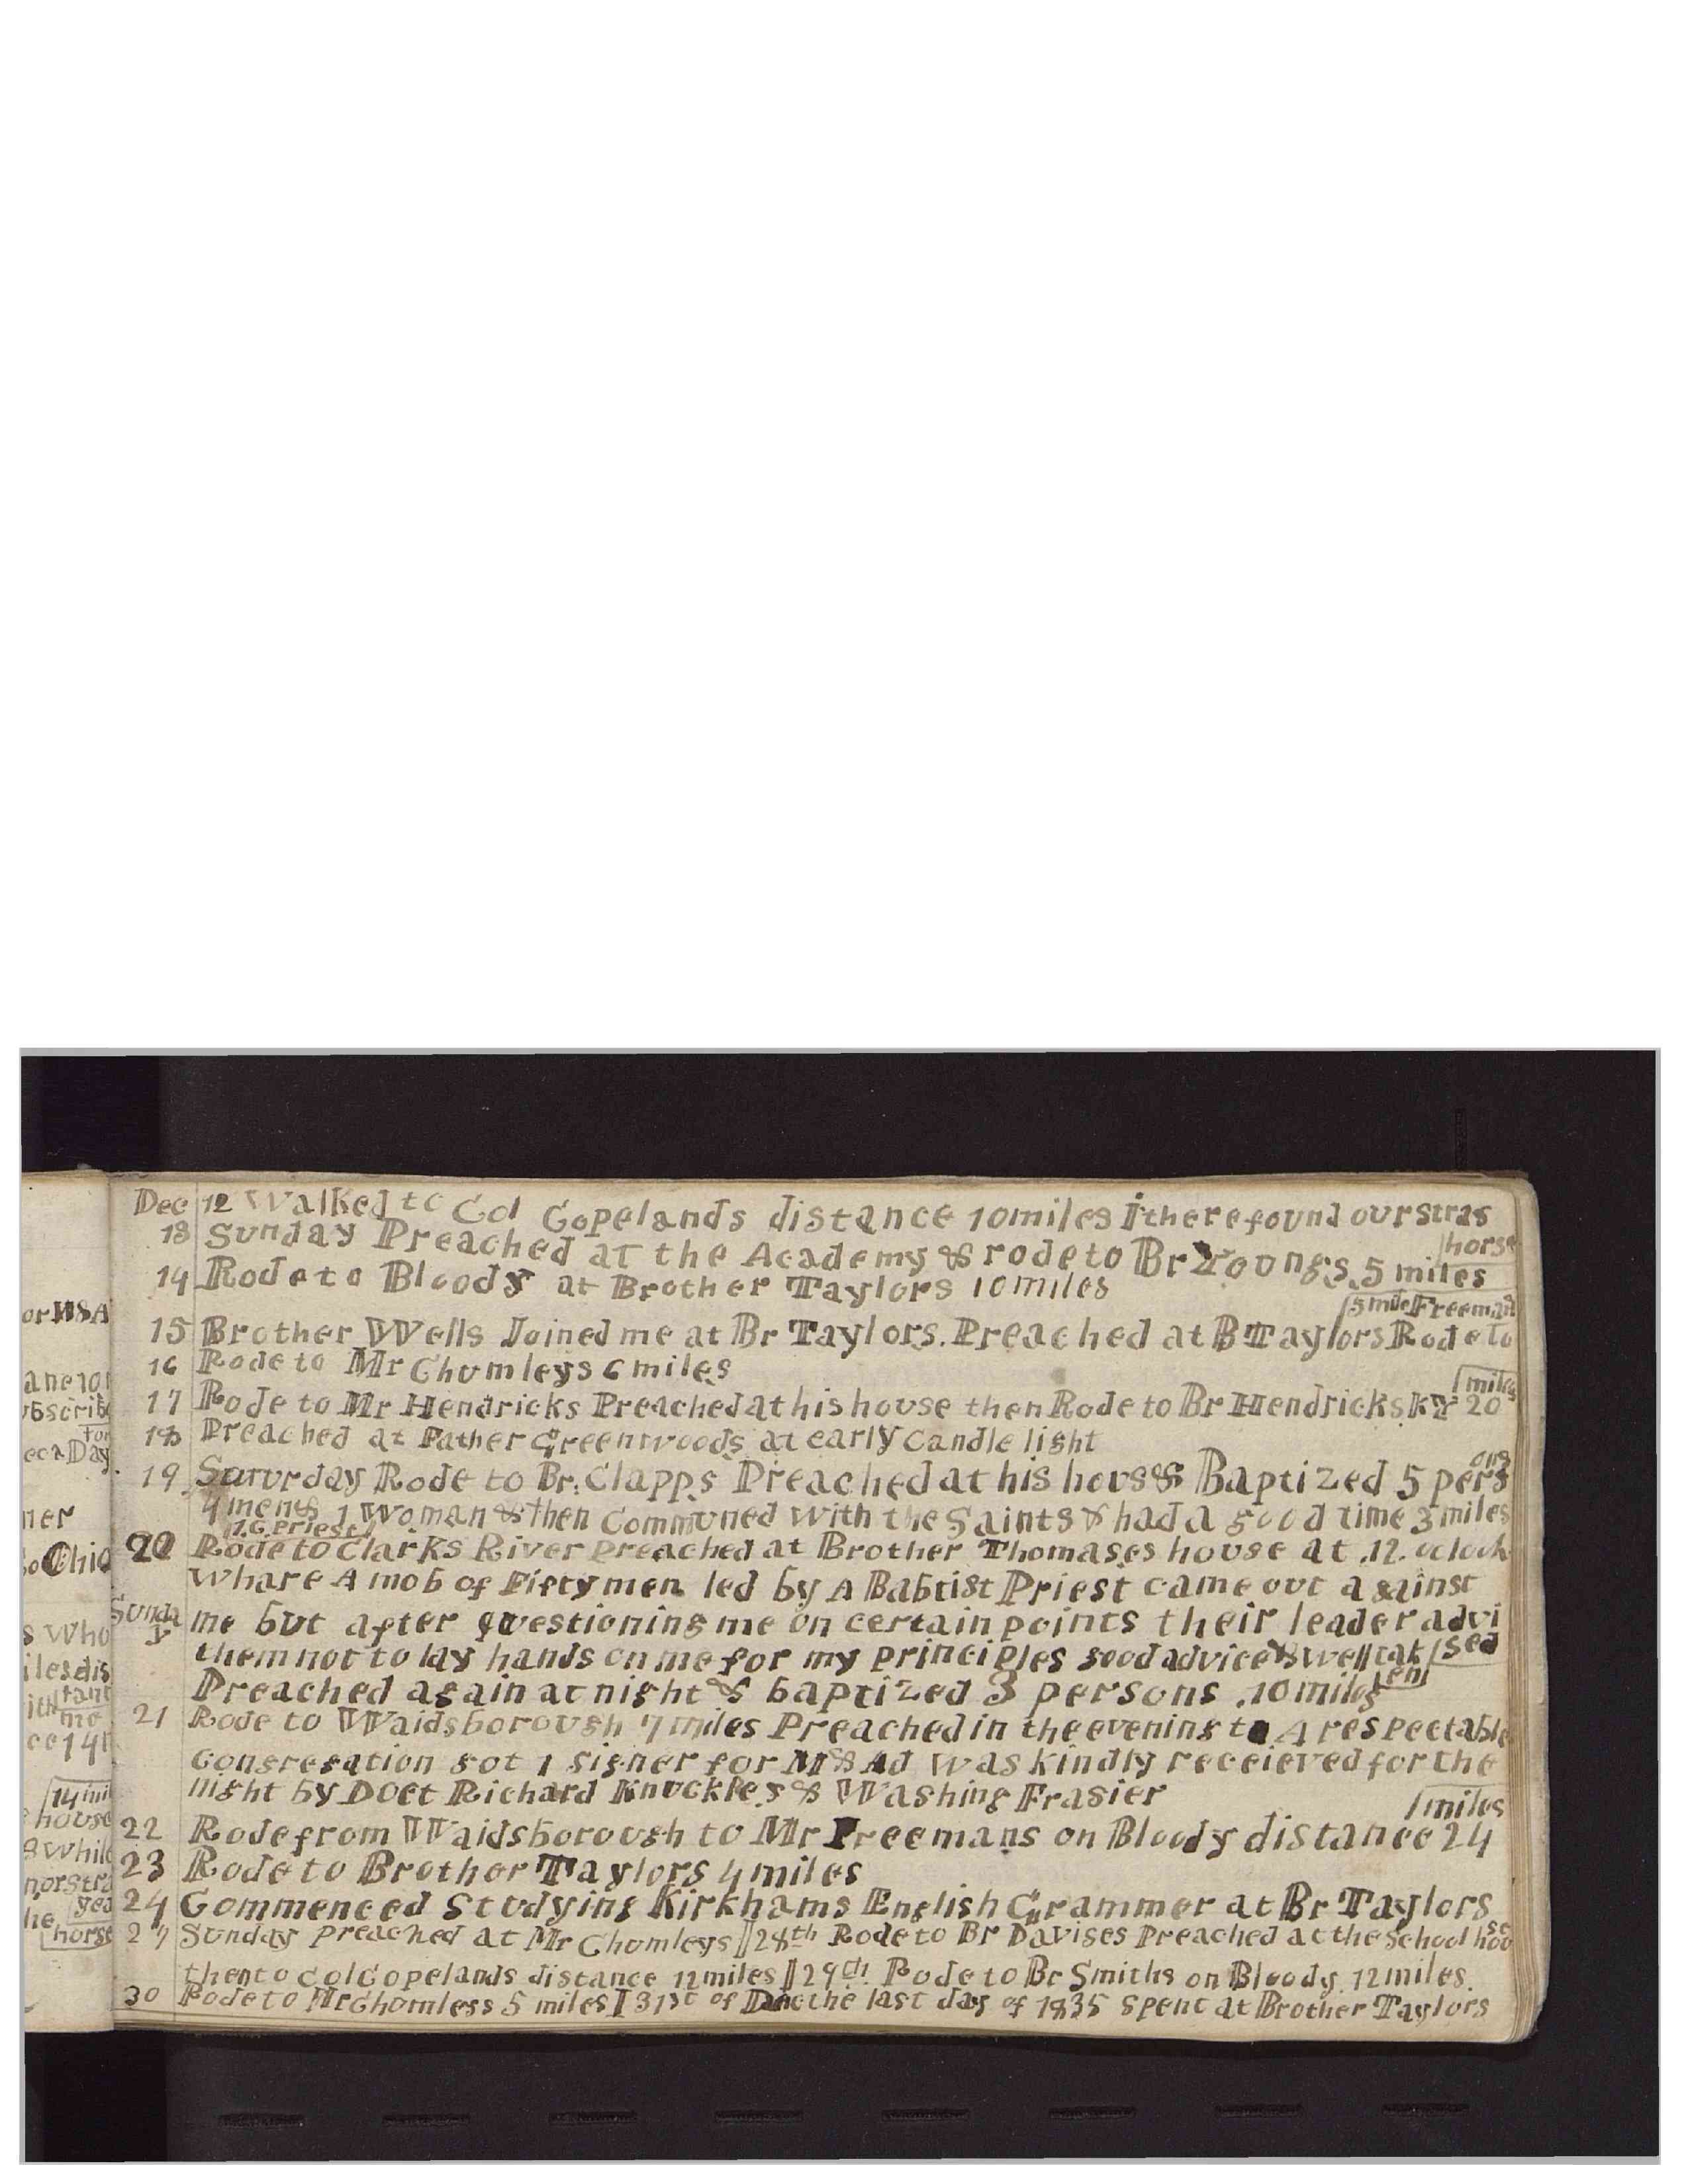 or M&A
ane 10
ubscribe
for
ec a Day
ner
so Ohio
s who
iles dis
tant
ith me
ce 14
14 mil
house
& while
nor stra
yed
he
horse
Dec 12 Walked to Col Copelands distance 10 miles I there found our stray
horse
13 Sunday Preached at the Academy & rode to Br Youngs. 5 miles
14 Rode to Bloody at Brother Taylors 10 miles
5 mile Freeman
15 Brother Wells Joined me at Br Taylors. Preached at B Taylors Rode to
16 Rode to Mr Chumleys 6 miles
miles
17 Rode to Mr Hendricks Preached at his house then Rode to Br Hendricks KY 20
18 Preached at Father Greenwoods at early Candle light
ons
19 Saturday Rode to Br. Clapps Preached at his hous & Baptized 5 pers
4 men & 1 Woman & then Communed with the Saints & had a good time 3 miles
J.G. Priest
20 Rode to Clarks River preached at Brother Thomases house at .12. oclock
Whare A mob of Fifty men led by A Babtist Priest came out against
Sunda
y me but after questioning me on certain points their leader advi
them not to lay hands on me for my principles good advice & well tak sed
en
Preached again at night & baptized 3 persons .10 miles
21 Rode to Waidsborough 7 miles Preached in the evening to A respectable
Congregation got 1 signer for M & Ad was kindly receieved for the
night by Doct Richard Knuckles & Washing Frasier
miles
22 Rode from Waidsborough to Mr Freemans on Bloody distance 24
23 Rode to Brother Taylors 4 miles
24 Commenced Studying Kirkhams English Grammer at Br Taylors
se
27 Sunday preached at Mr Chumleys || 28th Rode to Br Davises Preached at the School hou
then to Col Copelands distance 12 miles || 29th Rode to Br Smiths on Bloody. 12 miles.
30 Rode to Mr Chumless 5 miles || 31st of Dec the last day of 1835 spent at Brother Taylors